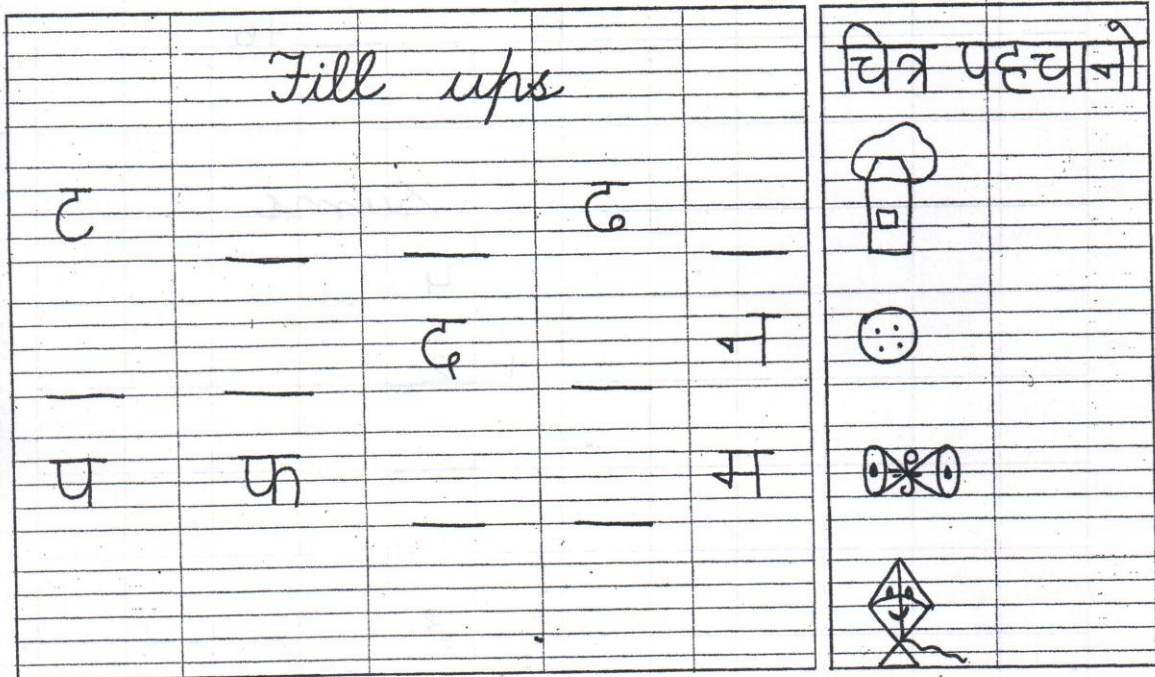 Fill ups
ट __ __ ढ __
__ __ द __ न
प फ __ __ म
चित्र पहचानो